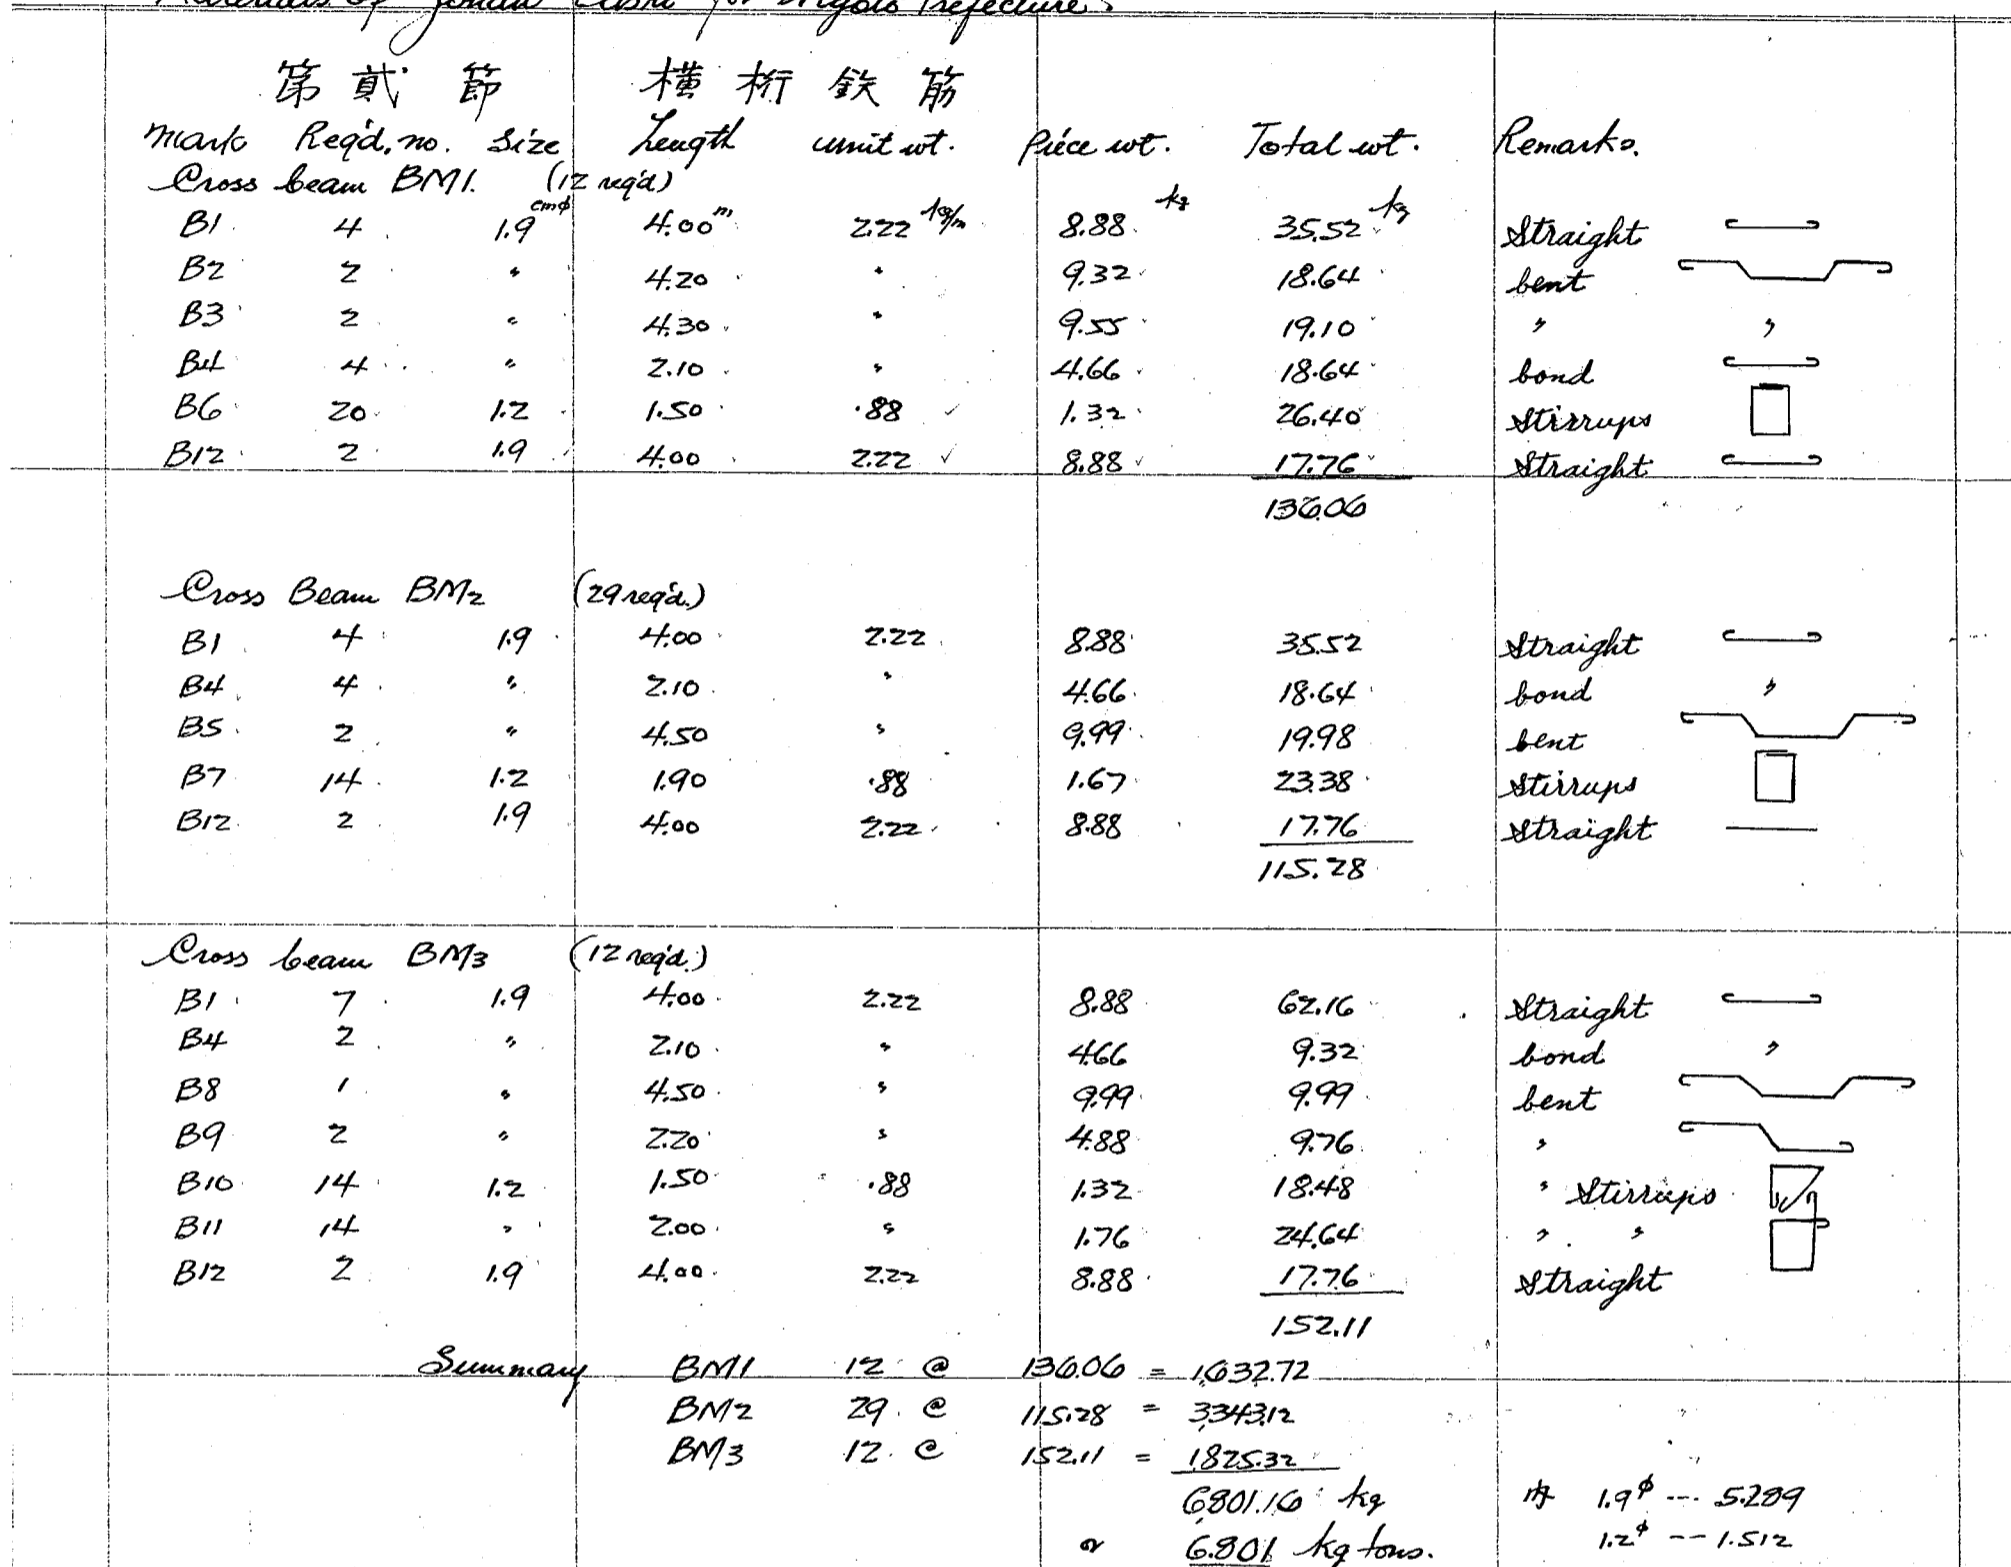 Materials of Jonan Bashi for Miyagi Prefecture.
第貳節 横桁鉄筋
Mark Req'd. no. Size Length unit wt. Piece wt. Total wt. Remarks.
Cross beam BM1. (12 req'd)
B1 4 1.9 cmφ 4.00 m 2.22 kg/m 8.88 kg 35.52 kg Straight
B2 2 " 4.20 " 9.32 18.64 bent
B3 2 " 4.30 " 9.55 19.10 " "
B4 4 " 2.10 " 4.66 18.64 bond
B6 20 1.2 1.50 .88 ✓ 1.32 26.40 Stirrups
B12 2 1.9 4.00 2.22 ✓ 8.88 17.76 Straight
136.06
Cross Beam BM2 (29 req'd.)
B1 4 1.9 4.00 2.22 8.88 35.52 Straight
B4 4 " 2.10 " 4.66 18.64 bond "
B5 2 " 4.50 " 9.99 19.98 bent
B7 14 1.2 1.90 .88 1.67 23.38 Stirrups
B12 2 1.9 4.00 2.22 8.88 17.76 Straight
115.28
Cross beam BM3 (12 req'd.)
B1 7 1.9 4.00 2.22 8.88 62.16 Straight
B4 2 " 2.10 " 4.66 9.32 bond "
B8 1 " 4.50 " 9.99 9.99 bent
B9 2 " 2.20 " 4.88 9.76 "
B10 14 1.2 1.50 .88 1.32 18.48 " Stirrups
B11 14 " 2.00 " 1.76 24.64 " "
B12 2 1.9 4.00 2.22 8.88 17.76 Straight
152.11
Summary BM1 12 @ 136.06 = 1,632.72
BM2 29 @ 115.28 = 3,343.12
BM3 12 @ 152.11 = 1,825.32
6,801.16 kg 内 1.9φ --- 5.289
or 6.801 kg tons. 1.2φ -- 1.512